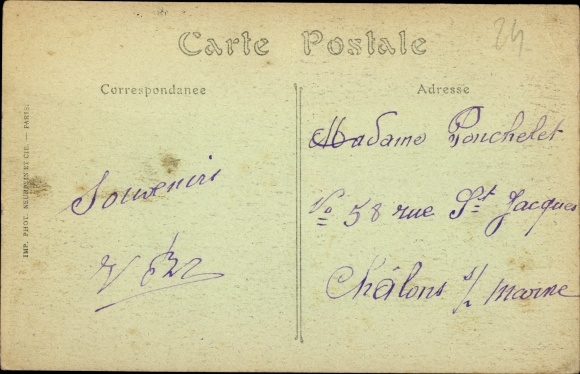 Carte Postale
24
Correspondance
Souvenirs
Adresse
Madame Ponchelet
No 58 rue St Jacques
Châlons s/ Marne
IMP. PHOT. NEURDEIN ET CIE. — PARIS.